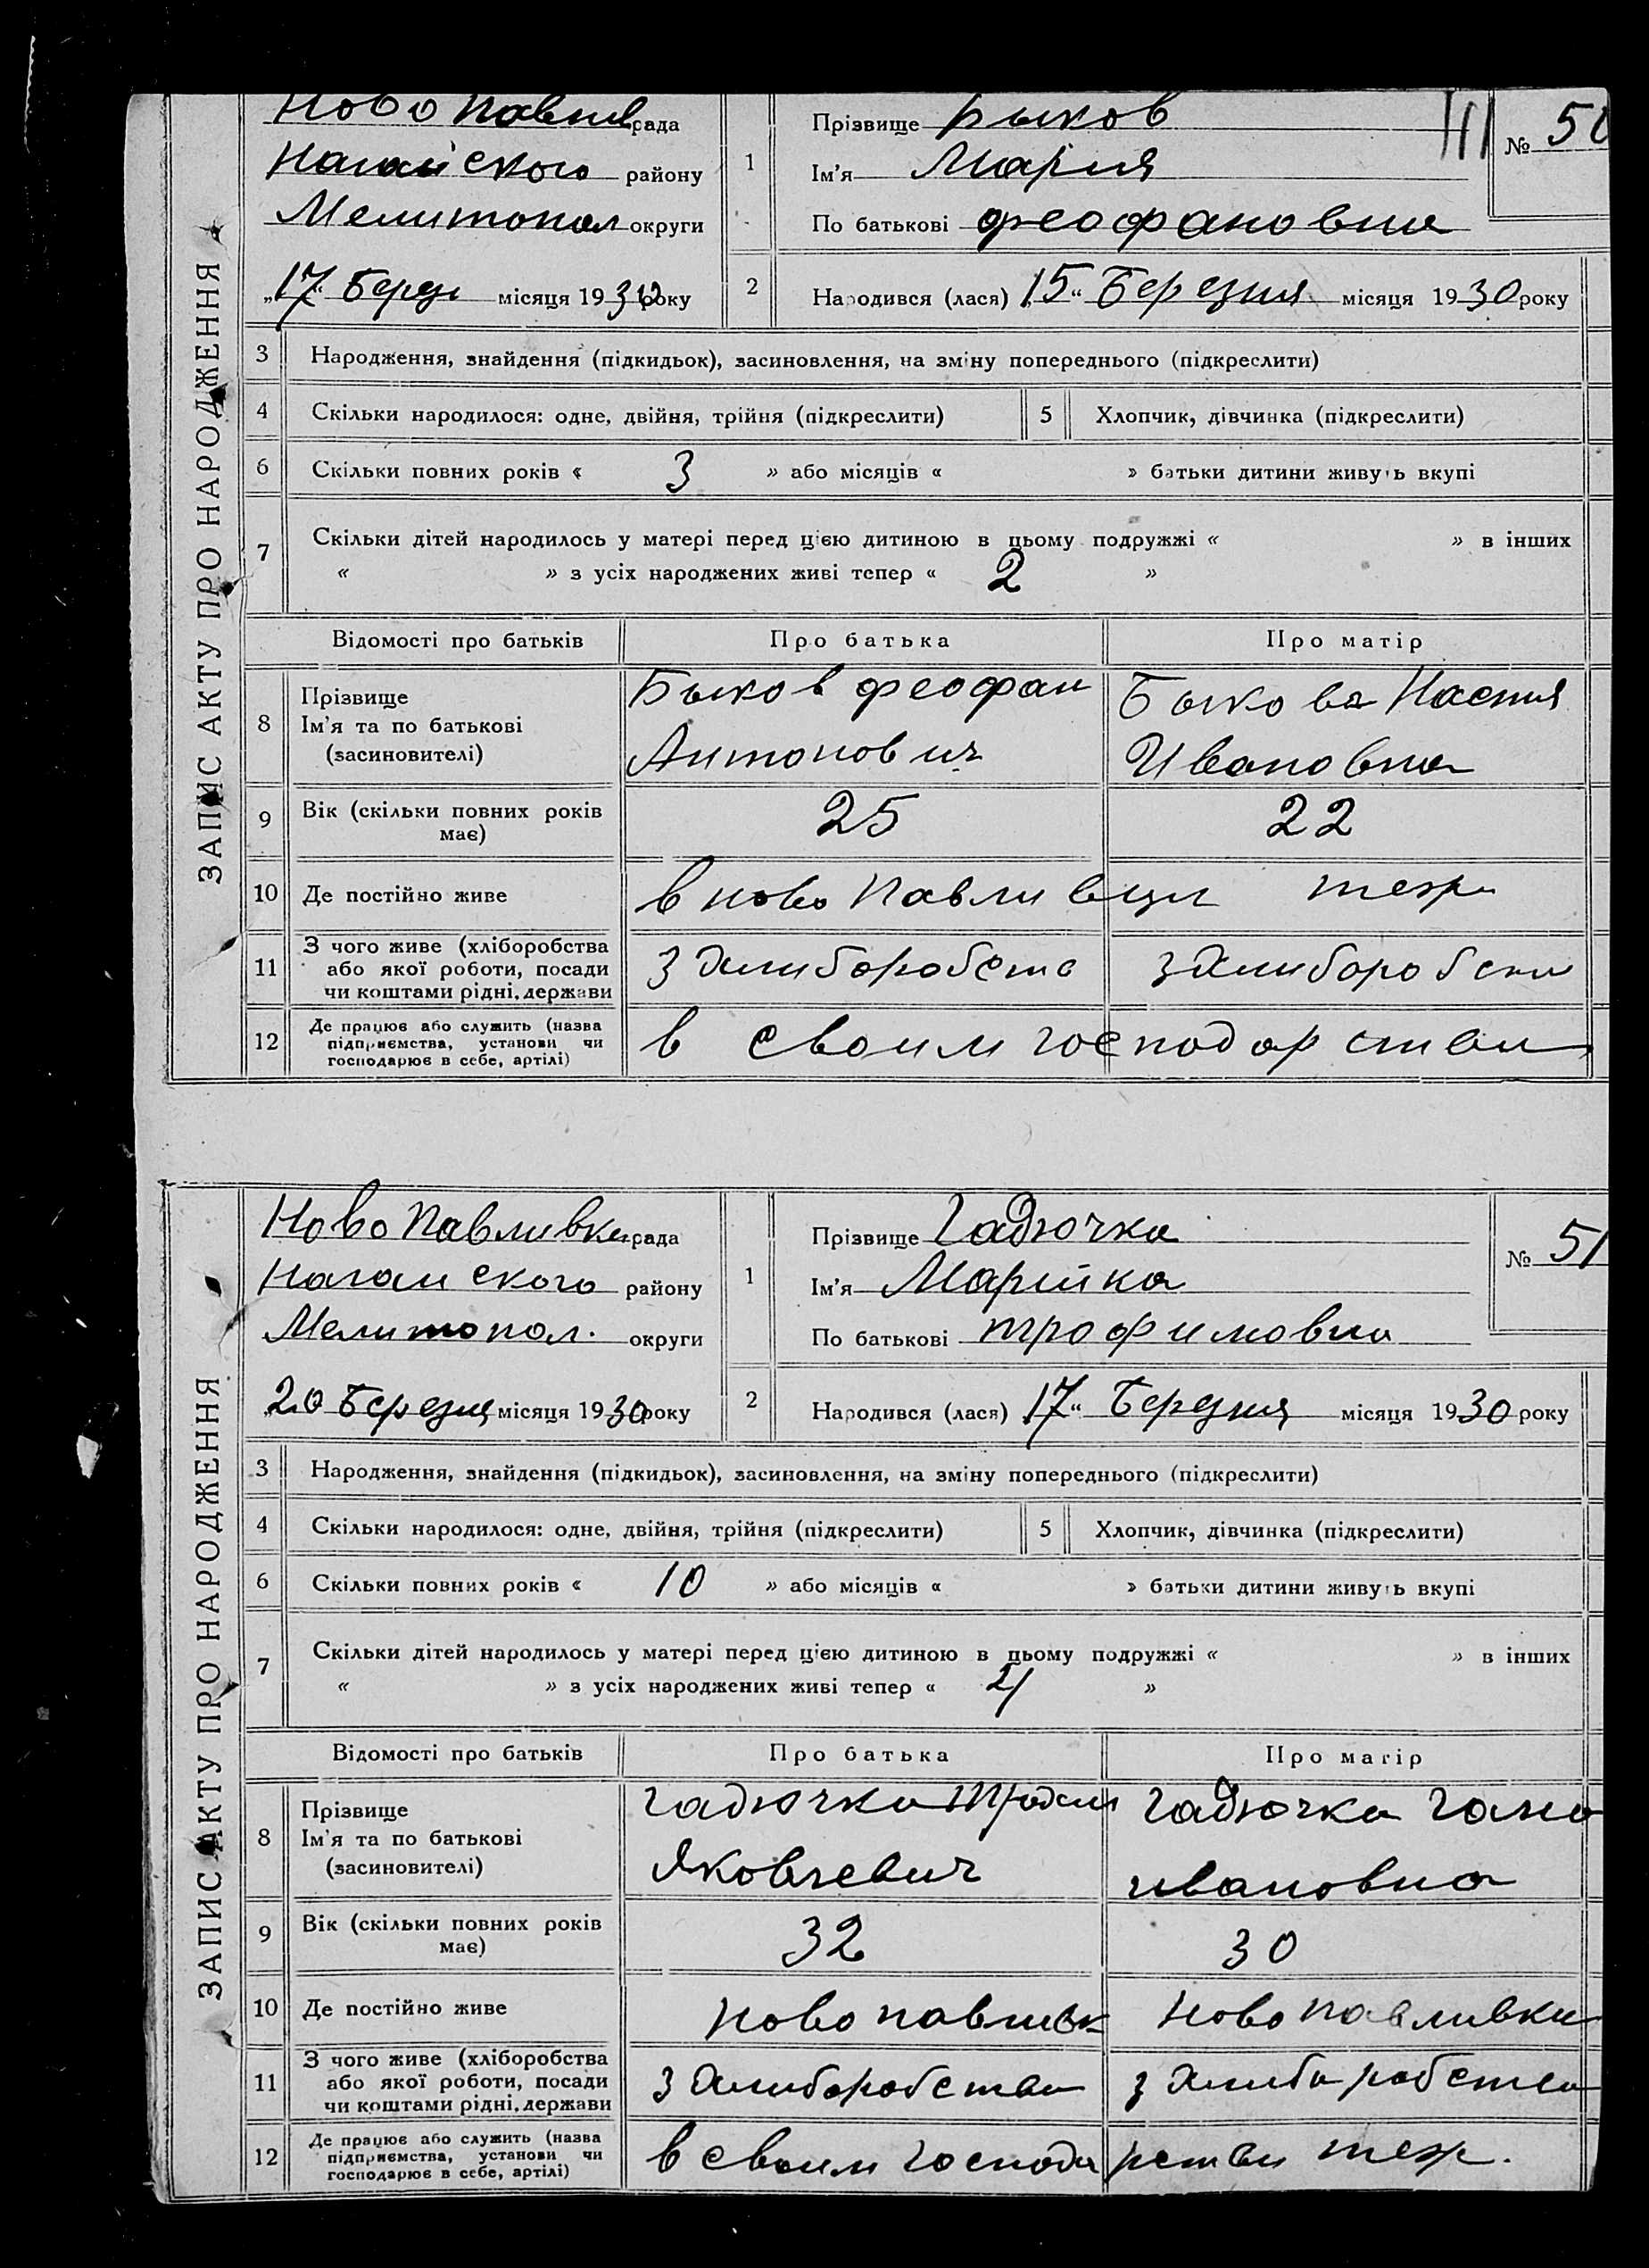 ЗАПИС АКТУ ПРО НАРОДЖЕННЯ
Ново Павлив рада
Нагайского району
Мелитопол округи
„17 Берез місяця 1930 року
1 Прізвище Быков
Ім'я Мария
По батькові феофановна
III № 50
2 Народився (лася) 15 „ Березня місяця 1930 року
3 Народження, знайдення (підкидьок), засиновлення, на зміну попереднього (підкреслити)
4 Скільки народилося: одне, двійня, трійня (підкреслити) 5 Хлопчик, дівчинка (підкреслити)
6 Скільки повних років « 3 » або місяців « » батьки дитини живуть вкупі
7 Скільки дітей народилось у матері перед цією дитиною в цьому подружжі « » в інших
« » з усіх народжених живі тепер « 2 »
Відомості про батьків Про батька Про матір
8 Прізвище Ім'я та по батькові (засиновителі) Быков феофан Антонович Быкова Настя Ивановна
9 Вік (скільки повних років має) 25 22
10 Де постійно живе в ново Павливци теж
11 З чого живе (хліборобства або якої роботи, посади чи коштами рідні, держави З Хлиборобства З Хлиборобства
12 Де працює або служить (назва підприємства, установи чи господарює в себе, артілі) в своим господарстви
ЗАПИС АКТУ ПРО НАРОДЖЕННЯ
Ново Павливка рада
Нагайского району
Мелитопол. округи
„20 Березня місяця 1930 року
1 Прізвище Гадючка
Ім'я Марийка
По батькові трофимовна
№ 51
2 Народився (лася) 17 „ Березня місяця 1930 року
3 Народження, знайдення (підкидьок), засиновлення, на зміну попереднього (підкреслити)
4 Скільки народилося: одне, двійня, трійня (підкреслити) 5 Хлопчик, дівчинка (підкреслити)
6 Скільки повних років « 10 » або місяців « » батьки дитини живуть вкупі
7 Скільки дітей народилось у матері перед цією дитиною в цьому подружжі « » в інших
« » з усіх народжених живі тепер « 4 »
Відомості про батьків Про батька Про матір
8 Прізвище Ім'я та по батькові (засиновителі) Гадючка Яковлевич Гадючка Гана ивановна
9 Вік (скільки повних років має) 32 30
10 Де постійно живе Ново павливк Ново павливки
11 З чого живе (хліборобства або якої роботи, посади чи коштами рідні, держави З Хлиборобства З Хлиборобства
12 Де працює або служить (назва підприємства, установи чи господарює в себе, артілі) в своим господарстви теж.